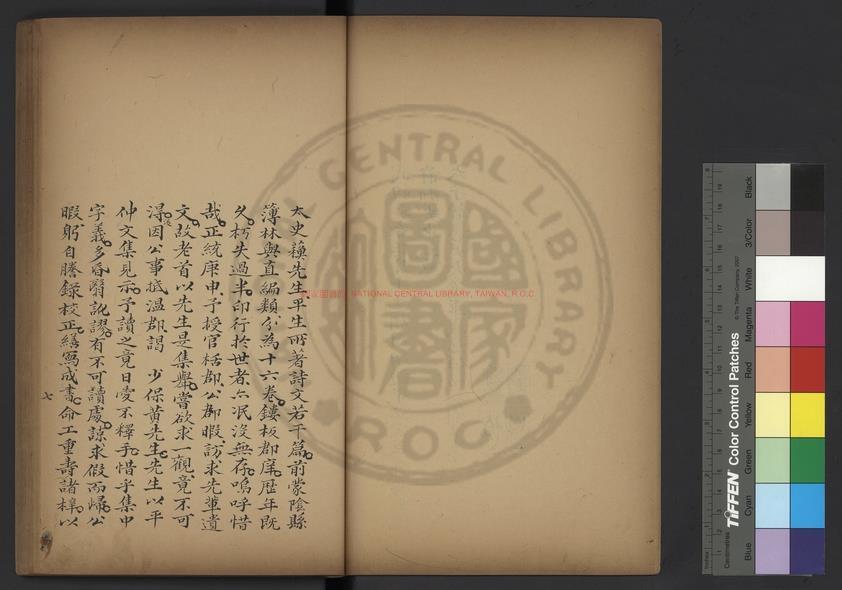 太史蘓先生平生所著詩文若干篇前蒙陰縣
薄林與直編類分為十六卷鏤板郡庠歷年既
久朽失過半印行於世者亦泯沒無存嗚呼惜
哉正統庚申予授官括郡公餘暇訪求先輩遺
文故老首以先生是集譽嘗欲求一觀竟不可
得後因公事抵溫郡謁 少保黃先生先生以平
仲文集見示予讀之竟日愛不釋手惜乎集中
字義多昏翳訛謬有不可讀處諒求假而歸公
暇躬自謄錄校正繕寫成書命工重壽諸梓以
NATIONAL CENTRAL LIBRARY, TAIWAN, R.O.C.
CENTRAL LIBRARY
ROC
國家圖書館
TIFFEN Color Control Patches
© The Tiffen Company, 2007
Centimetres
Inches
Blue
Cyan
Green
Yellow
Red
Magenta
White
3/Color
Black